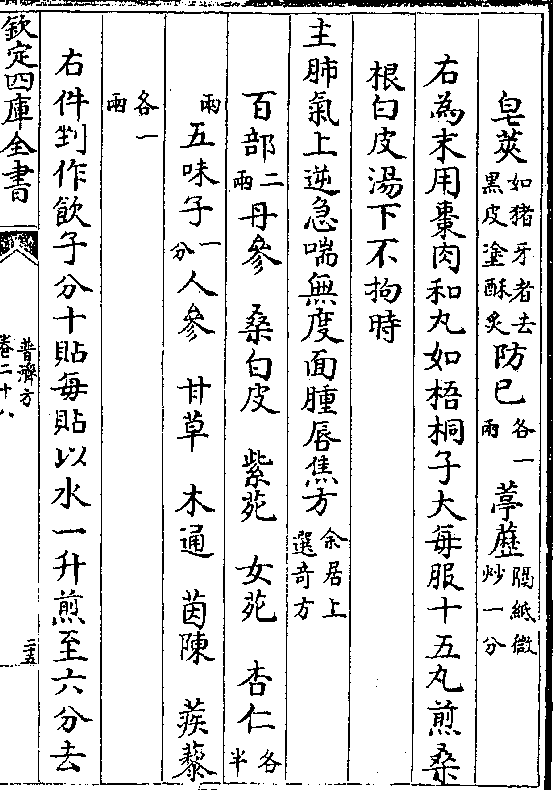 皂莢如猪牙者去黑皮塗酥炙防已各一兩葶藶隔紙微炒一分
右為末用棗肉和丸如梧桐子大每服十五丸煎桑
根白皮湯下不拘時
主肺氣上逆急喘無度面腫唇焦方余居上選竒方
百部二兩丹參　桑白皮　紫苑　女苑　杏仁各半
兩五味子一分人參　甘草　木通　茵陳　蒺藜
各一兩
右件剉作飲子分十貼每貼以水一升煎至六分去
欽定四庫全書
普濟方
卷二十八
二五